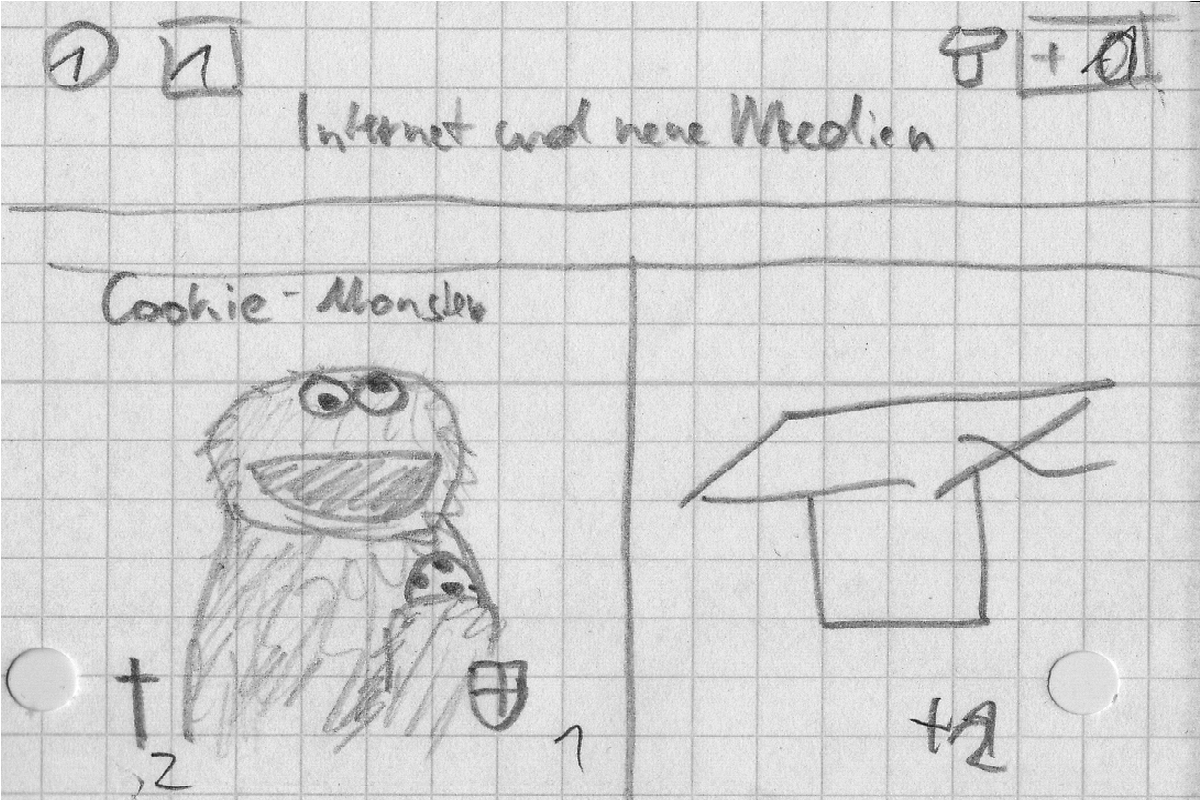 1 1 +
Internet und neue Medien
Cookie-Monster
2 1 +2